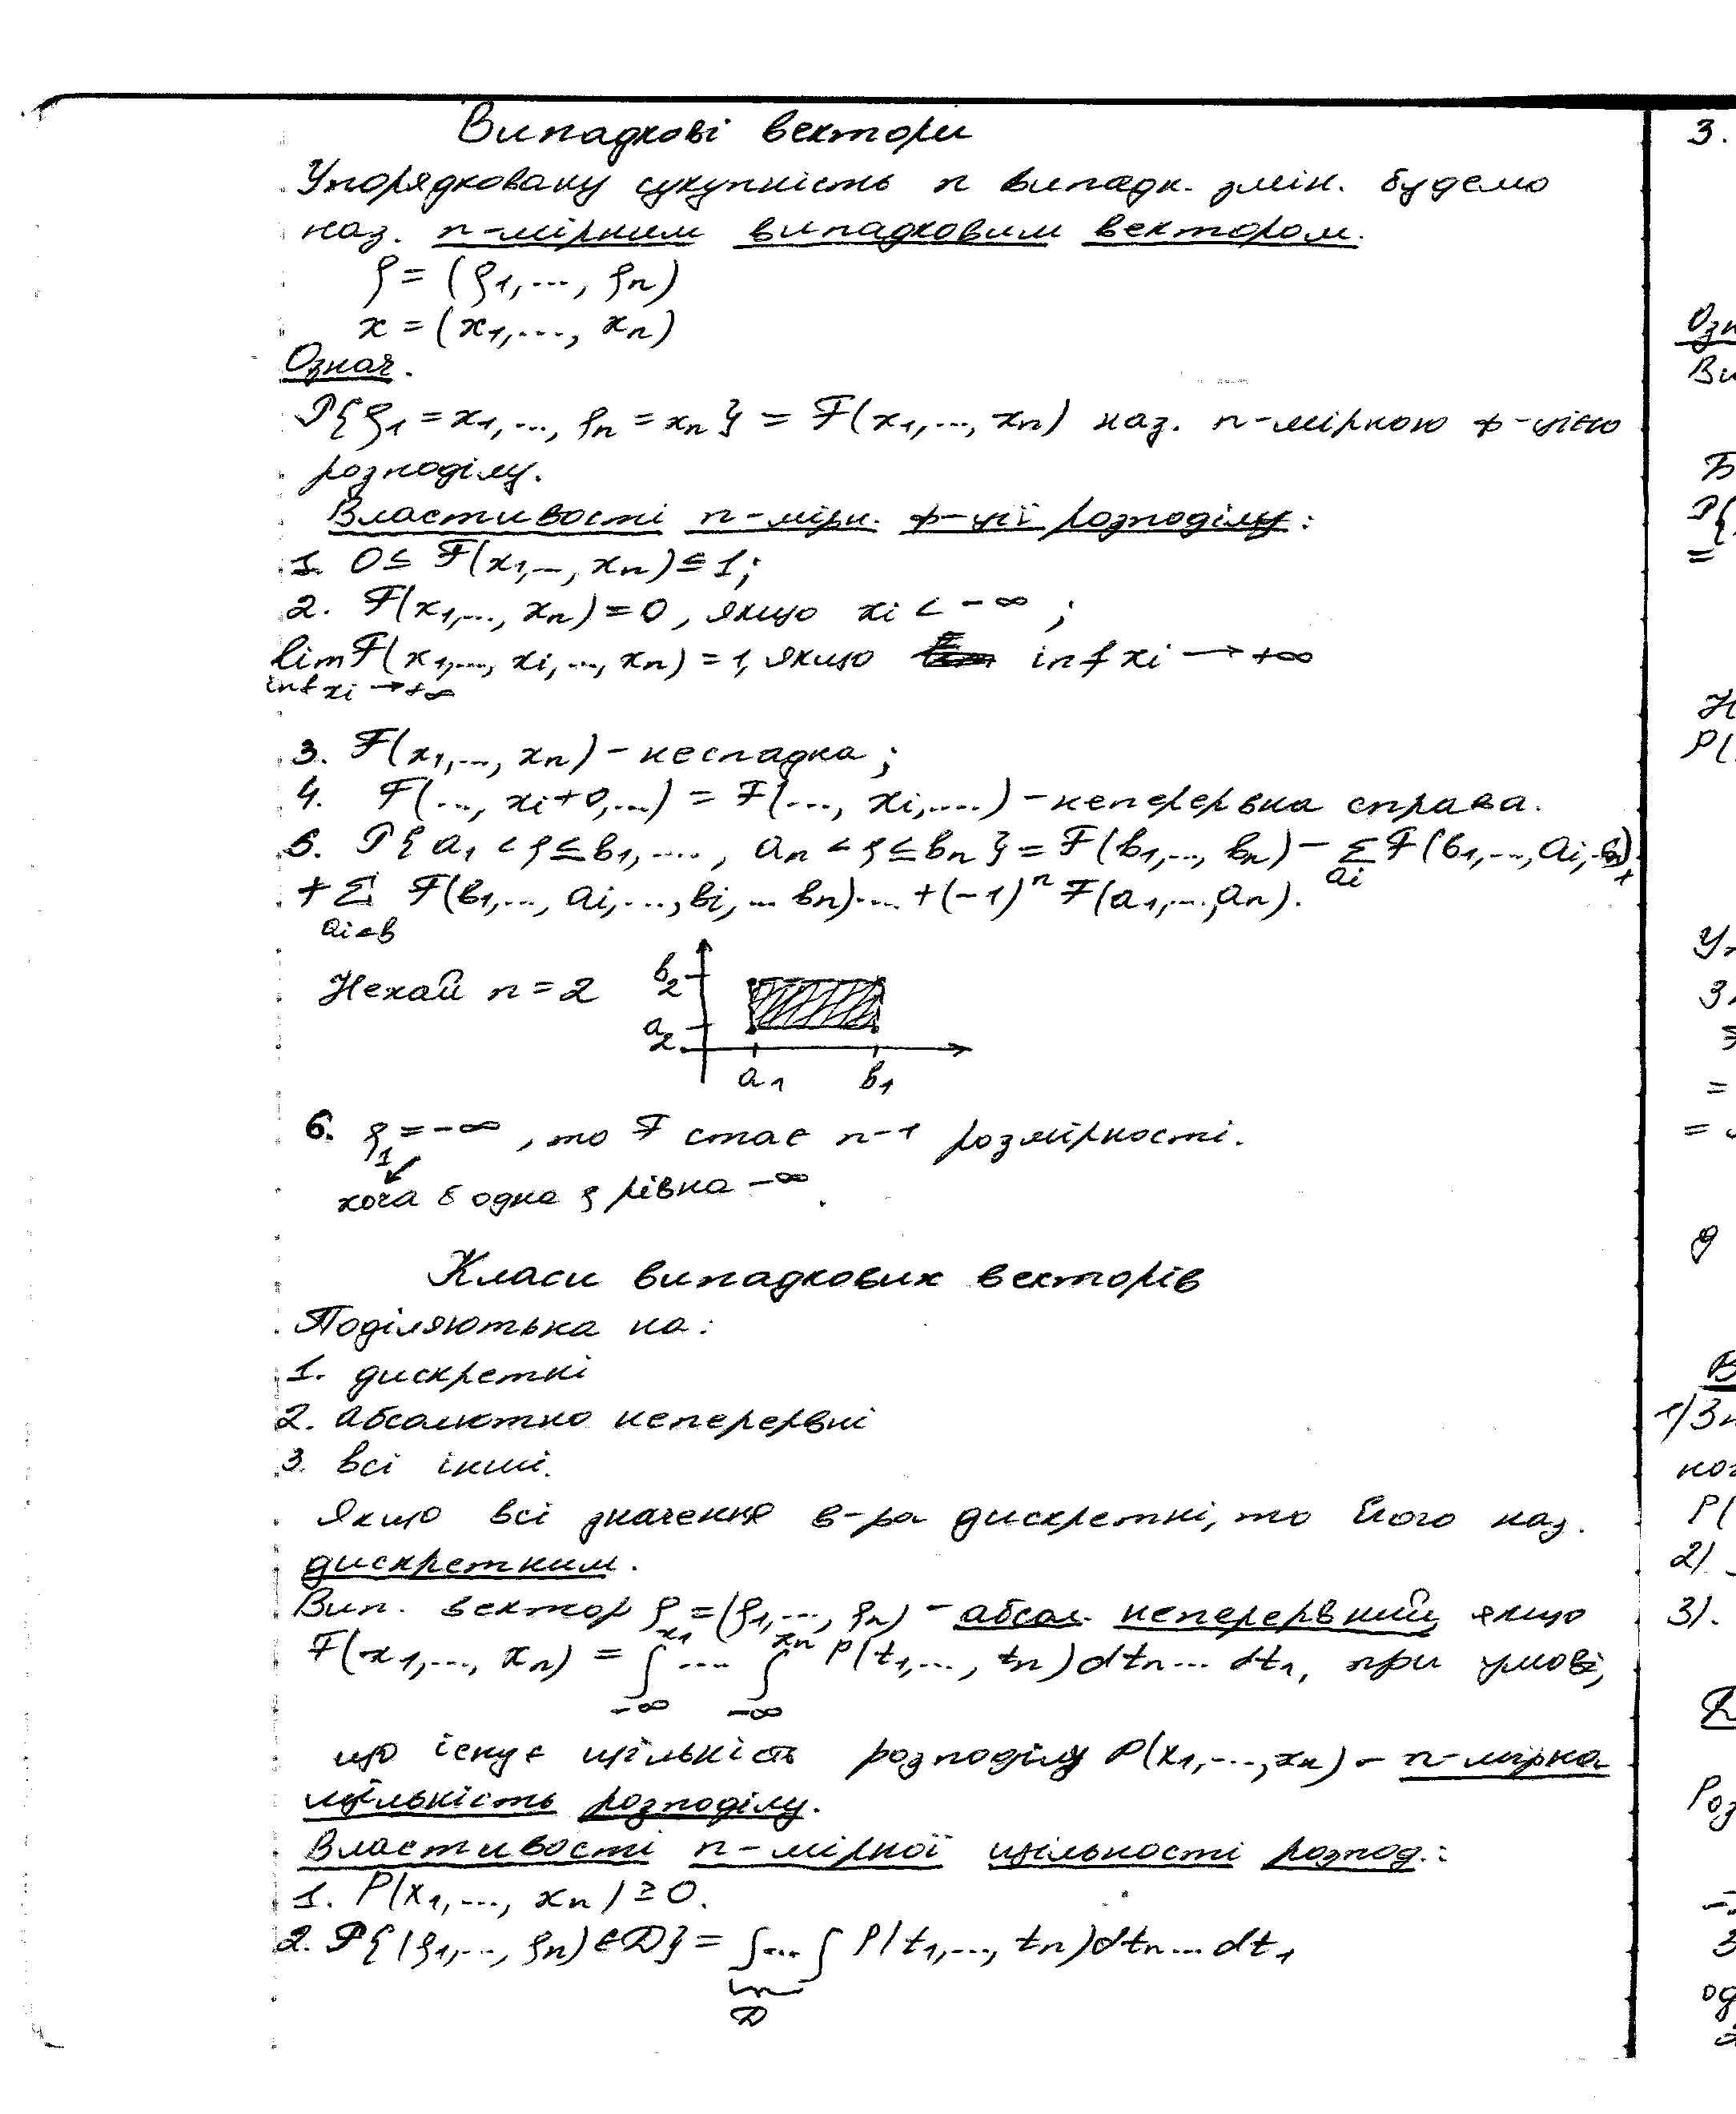 Випадкові вектори
Упорядковану сукупність n випадк. змін. будемо
наз. n-мірним випадковим вектором.
ξ = (ξ1,..., ξn)
x = (x1,..., xn)
Означ.
P{ξ1 = x1,..., ξn = xn} = F(x1,..., xn) наз. n-мірною ф-цією
розподілу.
Властивості n-мірн. ф-ції розподілу:
1. 0 ≤ F(x1,.., xn) ≤ 1;
2. F(x1,..., xn) = 0, якщо xi < -∞ ;
lim F(x1,..., xi,..., xn) = 1, якщо inf xi → +∞
inf xi → +∞
3. F(x1,..., xn) - неспадна;
4. F(..., xi+0,...) = F(..., xi,....) - неперервна справа.
5. P{a1 < ξ ≤ b1,...., an < ξ ≤ bn} = F(b1,..., bn) - Σ F(b1,..., ai,.. bn)
ai
+ Σ F(b1,..., ai,..., bi,... bn).... + (-1)^n F(a1,..., an).
ai<b
Нехай n = 2
b2
a2
a1 b1
6. ξ1 = -∞, то F стає n-1 розмірності.
хоча б одна ξ рівна -∞.
Класи випадкових векторів
Поділяютька на:
1. дискретні
2. абсолютно неперервні
3. всі інші.
Якщо всі значення в-ра дискретні, то його наз.
дискретним.
Вип. вектор ξ = (ξ1,..., ξn) - абсол. неперервний, якщо
F(x1,..., xn) = ∫_{-∞}^{x1} .... ∫_{-∞}^{xn} P(t1,..., tn) dtn... dt1, при умові,
що існує щільність розподілу P(x1,...,xn) - n-мірна
щільність розподілу.
Властивості n-мірної щільності розпод.:
1. P(x1,..., xn) ≥ 0.
2. P{(ξ1,..., ξn) ∈ D} = ∫...∫ P(t1,..., tn) dtn... dt1
D
3.
Озн
Ви
Б
P{
=
P(
=
=
1) Зн
P(
2)
3).
Роз